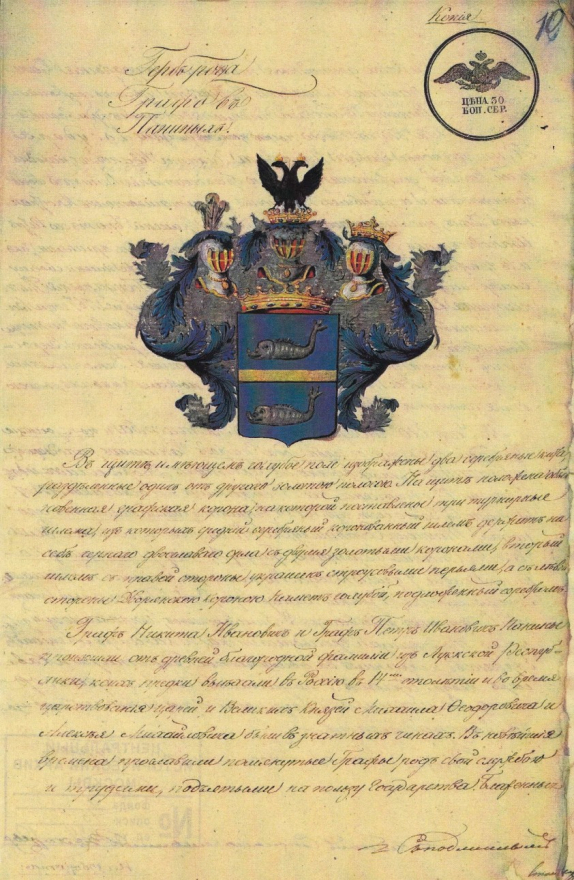 Копія
19
Гербъ рода
Графовъ
Паниныхъ.
ЦѢНА 30
КОП. СЕР.
Въ щитѣ, имѣющемъ голубое поле изображены два серебряные кита,
раздѣленные одинъ отъ другаго золотою полосою. На щитъ положена
графская корона, на которой поставлено три турнирные
шлема, изъ которыхъ средній серебряный коронованный шлемъ держитъ на
себѣ чернаго двуглаваго орла съ двумя золотыми коронами, вторый
шлемъ съ правой стороны украшенъ строусовыми перьями, а съ лѣвой
стороны Дворянскою короною. Наметъ голубой, подложенный серебромъ.
Графъ Никита Ивановичъ и Графъ Петръ Ивановичъ Панины
произошли отъ древней благородной фамиліи изъ Луккской Респуб-
лики, коихъ предки выѣхали въ Россію въ 14 столѣтіи и во время
царствованія Царей и Великихъ Князей Михаила Ѳеодоровича и
Алексѣя Михайловича были въ знатныхъ чинахъ. Въ новѣйшія
времена прославили помянутые Графы родъ свой службою
и трудами, подъятыми на пользу Государства. Блаженныя